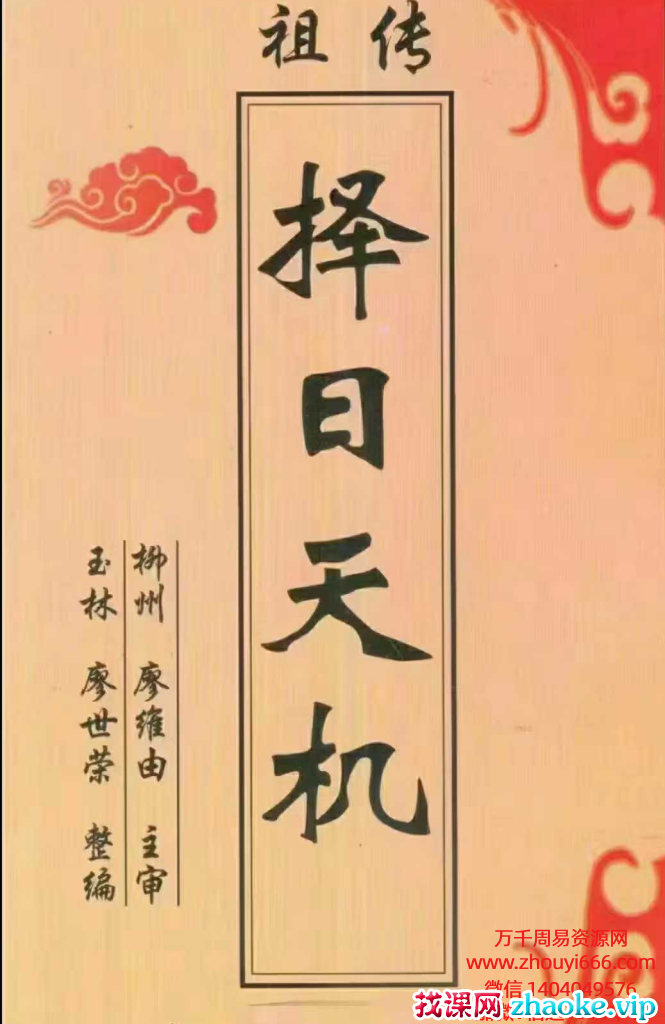 祖传
择日天机
柳州 廖维由 主审
玉林 廖世荣 整编
万千周易资源网
www.zhouyi666.com
微信 1404049576
找课网zhaoke.vip